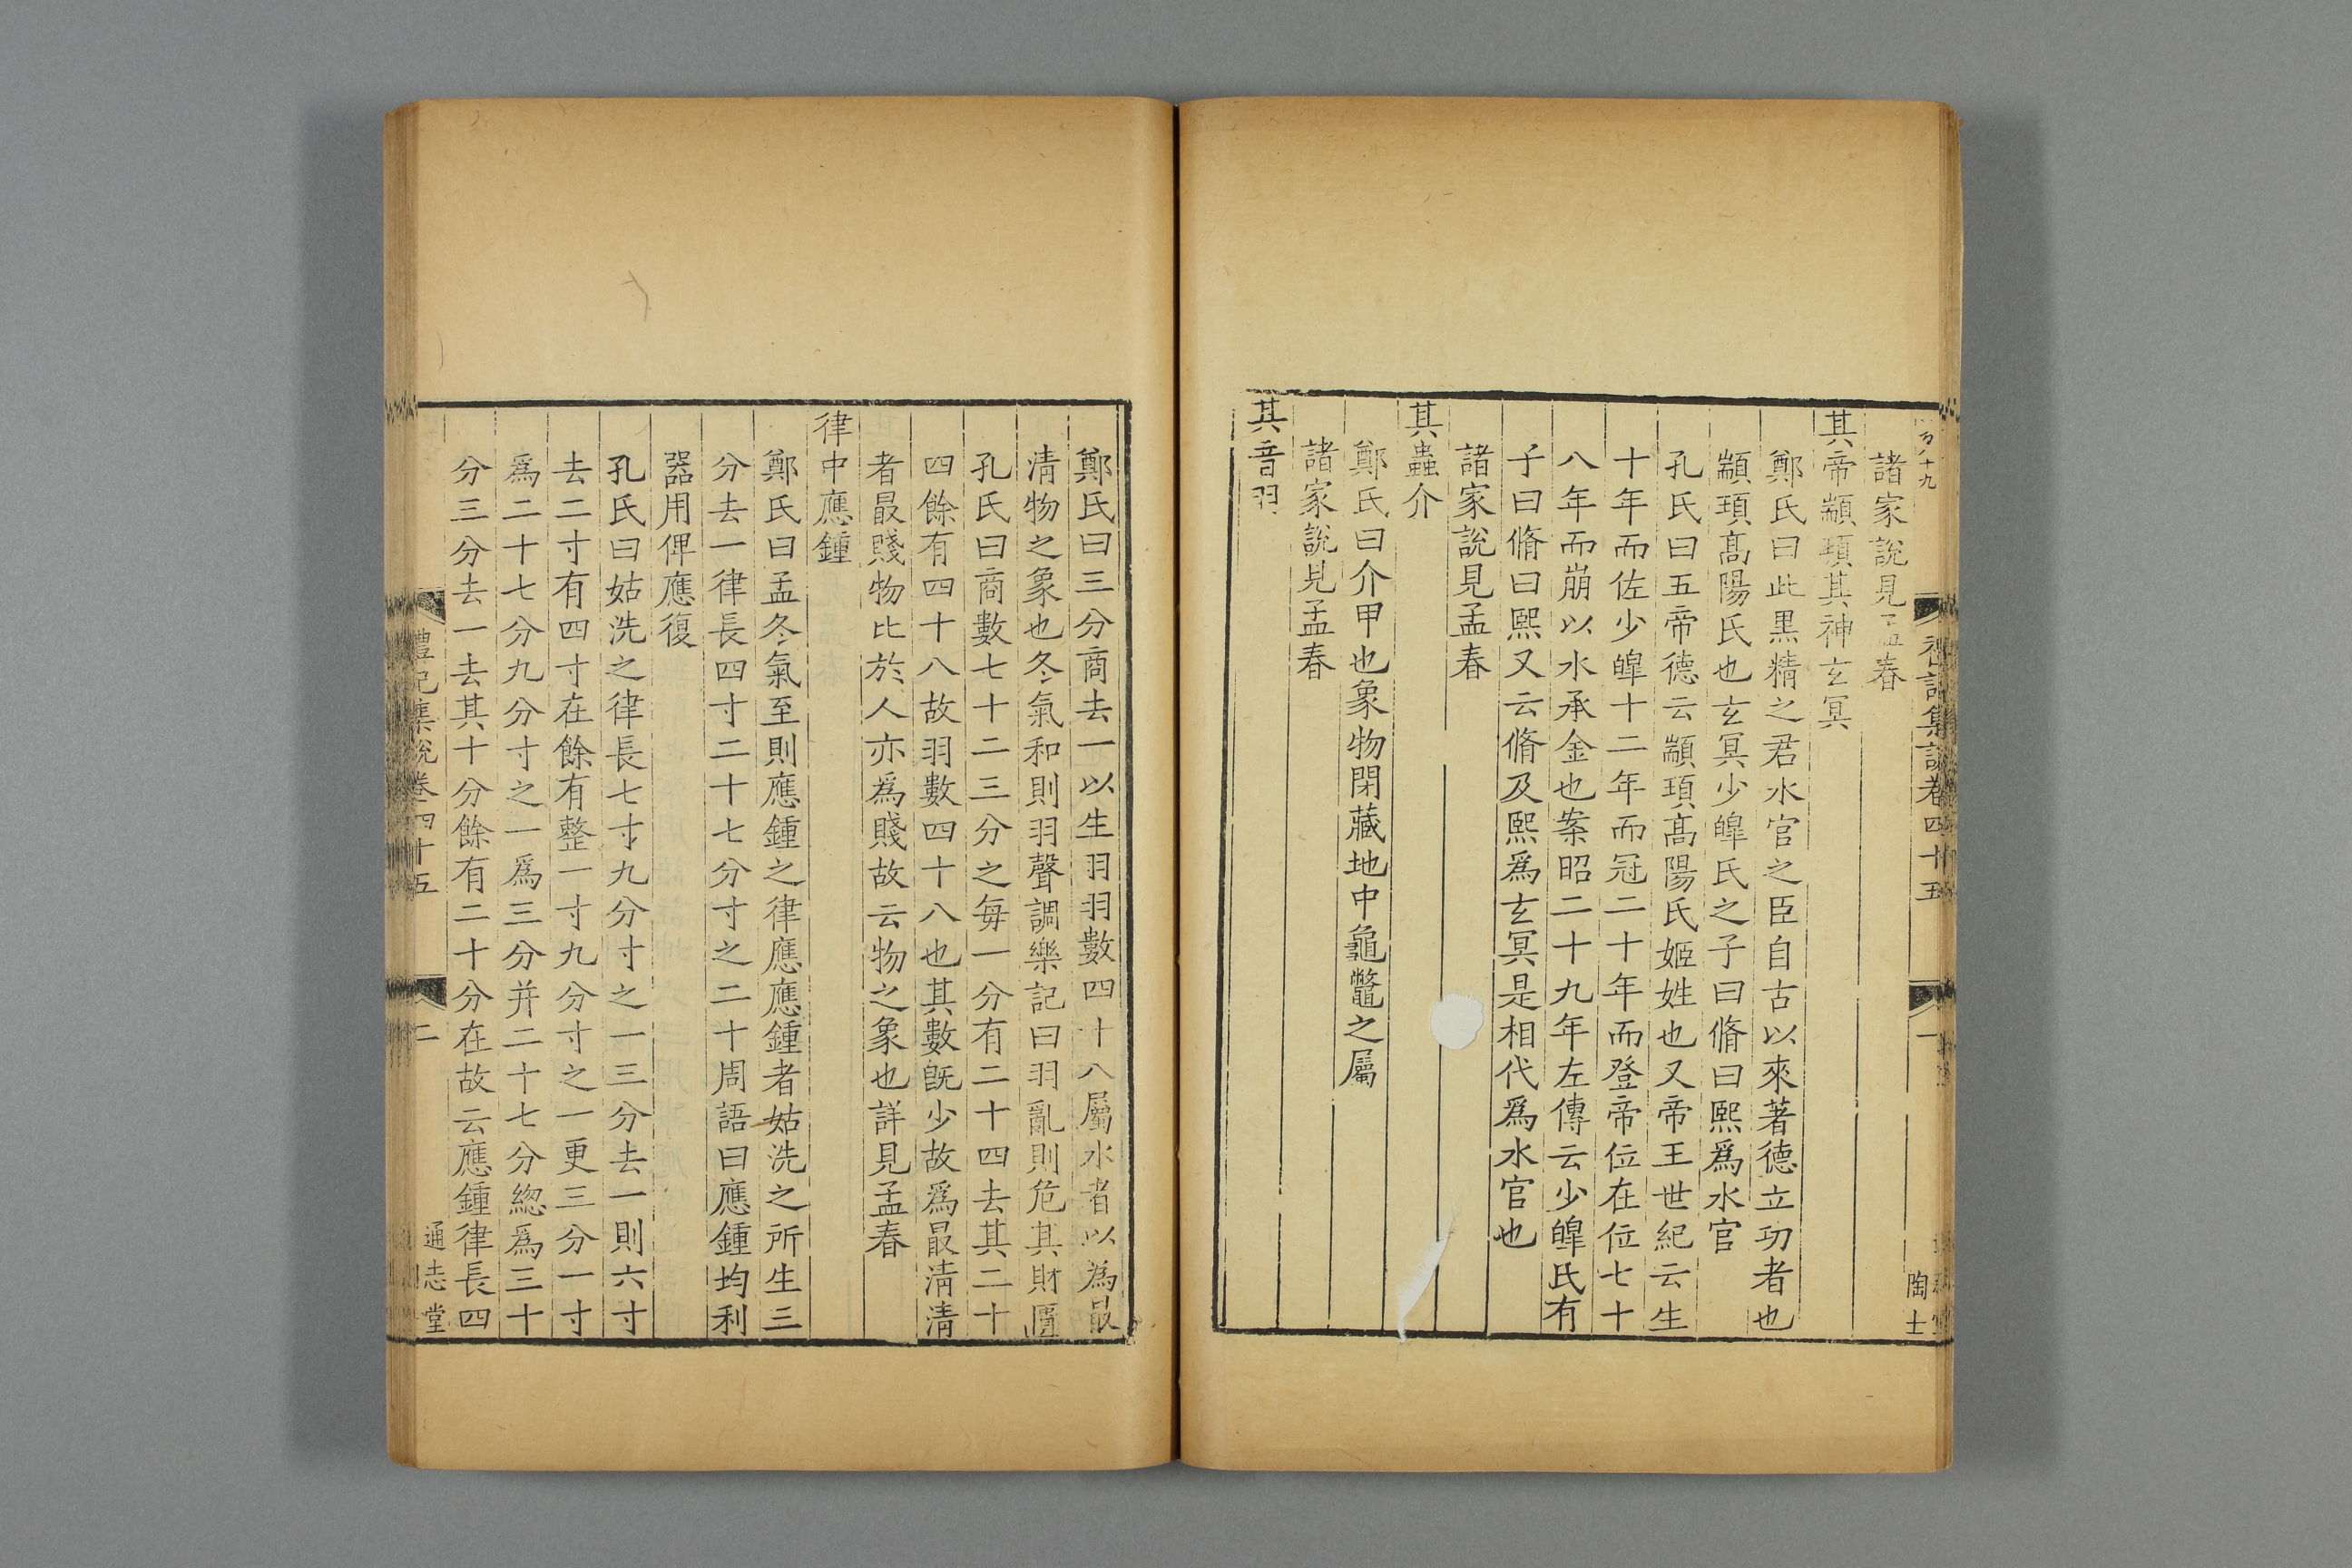 諸家說見孟春
其帝顓頊其神玄冥
鄭氏曰此黒精之君水官之臣自古以來著德立功者也
顓頊髙陽氏也玄冥少皥氏之子曰脩曰熙爲水官
孔氏曰五帝德云顓頊髙陽氏姬姓也又帝王世紀云生
十年而佐少皥十二年而冠二十年而登帝位在位七十
八年而崩以水承金也案昭二十九年左傳云少皥氏有
子曰脩曰熙又云脩及熙爲玄冥是相代爲水官也
諸家說見孟春
其蟲介
鄭氏曰介甲也象物閉藏地中龜鼈之屬
諸家說見孟春
其音羽
鄭氏曰三分商去一以生羽羽數四十八屬水者以為最
清物之象也冬氣和則羽聲調樂記曰羽亂則危其財匱
孔氏曰商數七十二三分之每一分有二十四去其二十
四餘有四十八故羽數四十八也其數旣少故爲最清清
者最賤物比於人亦爲賤故云物之象也詳見孟春
律中應鍾
鄭氏曰孟冬氣至則應鍾之律應應鍾者姑洗之所生三
分去一律長四寸二十七分寸之二十周語曰應鍾均利
器用俾應復
孔氏曰姑洗之律長七寸九分寸之一三分去一則六寸
去二寸有四寸在餘有整一寸九分寸之一更三分一寸
爲二十七分九分寸之一爲三分并二十七分緫爲三十
分三分去一去其十分餘有二十分在故云應鍾律長四
禮記集說卷四十五
二
通志堂
禮記集說卷四十五
一
陶士